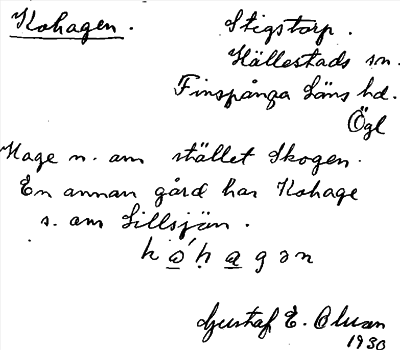 Kohagen.
Stigstorp.
Hällestads sn.
Finspånga Läns hd.
Ögl
Hage n. om stället Skogen.
En annan gård har Kohage
s. om Lillsjön.
Gustaf E. Olsson
1930